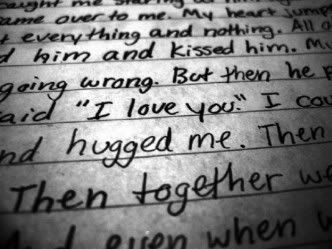 me staring
ame over to me. My heart jum
t everything and nothing. All o
d him and kissed him. M
going wrong. But then he
aid "I love you." I cou
nd hugged me. Then
Then together we
even when w